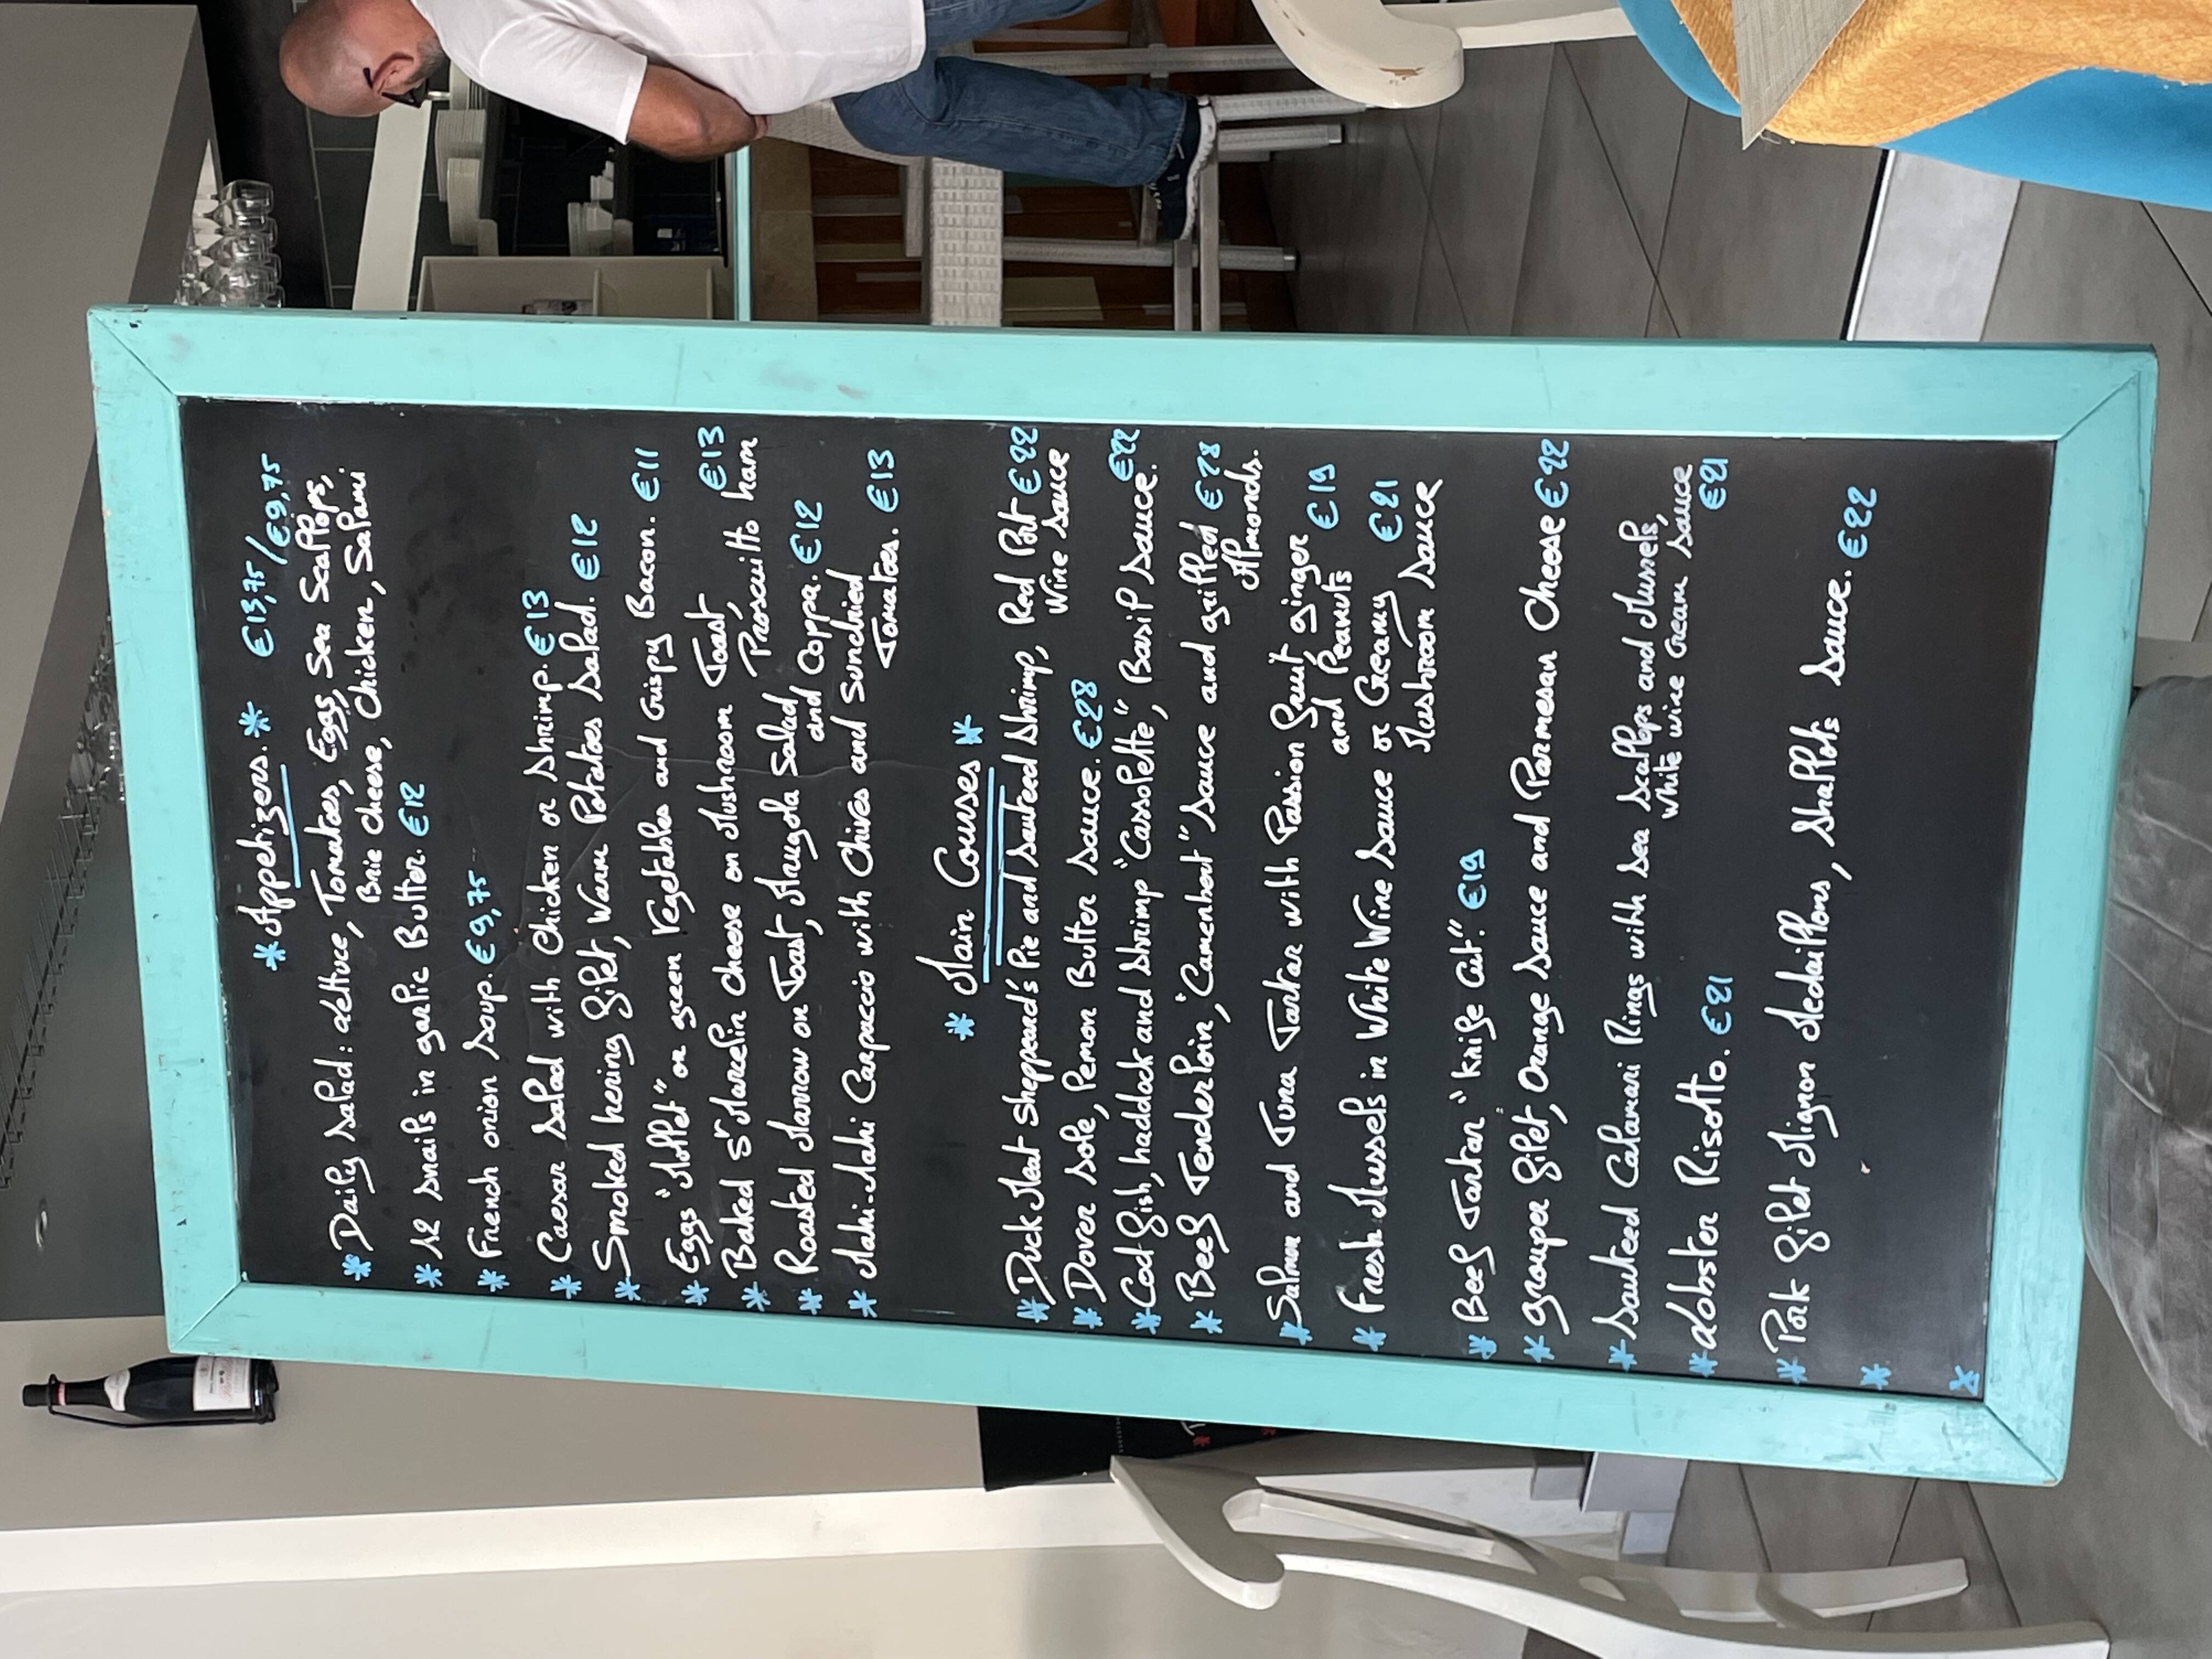 * Appetizers. * €13,75/€9,75
* Daily Salad: Lettuce, Tomatoes, Egg, Sea Scallops,
Brie cheese, Chicken, Salami
* 12 Snails in garlic Butter. €12
* French onion Soup. €9,75
* Caesar Salad with Chicken or Shrimp. €13
* Smoked hering filet, Warm Potatoes Salad. €12
* Eggs "Mollet" or green Vegetables and Crispy Bacon. €11
* Baked St Marcelin Cheese on Mushroom Toast, €13
Proscuitto ham
* Roasted Marrow on Toast, Arugola Salad
and Coppa. €12
* Mahi-Mahi Carpaccio with Chives and Sundried
Tomatoes. €13
* Main Courses *
* Duck Meat Sheppard's Pie and sauteed Shrimp, Red Port €22
Wine Sauce
* Dover Sole, Lemon Butter Sauce. €28
* Cod fish, haddock and Shrimp "Cassolette", Basil Sauce. €22
* Beef Tenderloin, "Camembert" Sauce and grilled €28
Almonds.
* Salmon and Tuna Tartar with Passion fruit, ginger
and Peanuts €19
* Fresh Mussels in White Wine Sauce or Creamy €21
Mushroom Sauce
* Beef Tartar "Knife Cut". €19
* Grouper filet, Orange Sauce and Parmesan Cheese €22
* Sauteed Calamari Rings with Sea Scallops and Mussels,
White wine Cream Sauce
€21
* Lobster Risotto. €21
* Pork filet Mignon Medaillons, Shallots Sauce. €22
*
*